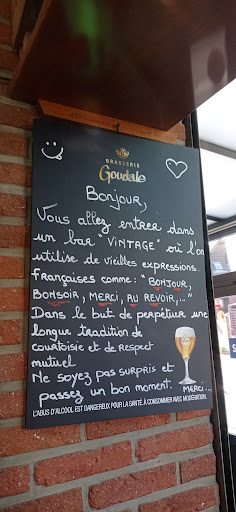 BRASSERIE
Goudale
Bonjour,
Vous allez entrer dans
un bar "VINTAGE" où l'on
utilise de vieilles expressions
françaises comme : "BONJOUR,
BONSOIR, MERCI, AU REVOIR,..."
Dans le but de perpétuer une
longue tradition de
courtoisie et de respect
mutuel
Ne soyez pas surpris et
passez un bon moment. MERCI...
L'ABUS D'ALCOOL EST DANGEREUX POUR LA SANTÉ. À CONSOMMER AVEC MODÉRATION.